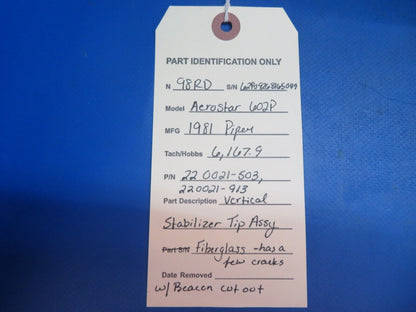 PART IDENTIFICATION ONLY
N 98RD S/N 62P08268165049
Model Aerostar 602P
MFG 1981 Piper
Tach/Hobbs 6,167.9
P/N 220021-503,
220021-913
Part Description Vertical
Stabilizer Tip Assy
Part S/N Fiberglass - has a
few cracks
Date Removed
w/ Beacon cut out